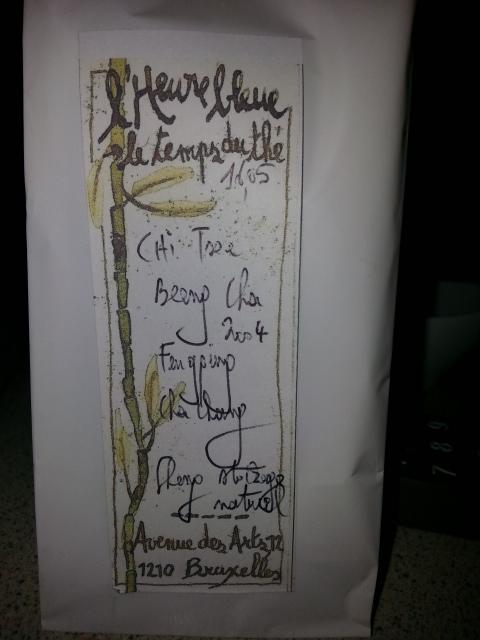 l'Heure bleue
le temps du thé
1605
Chi Tsee
Beeng Cha
2004
Fengqing
Cha Chang
Sheng stockage
naturel
Avenue des Arts 12
1210 Bruxelles
7 8 9